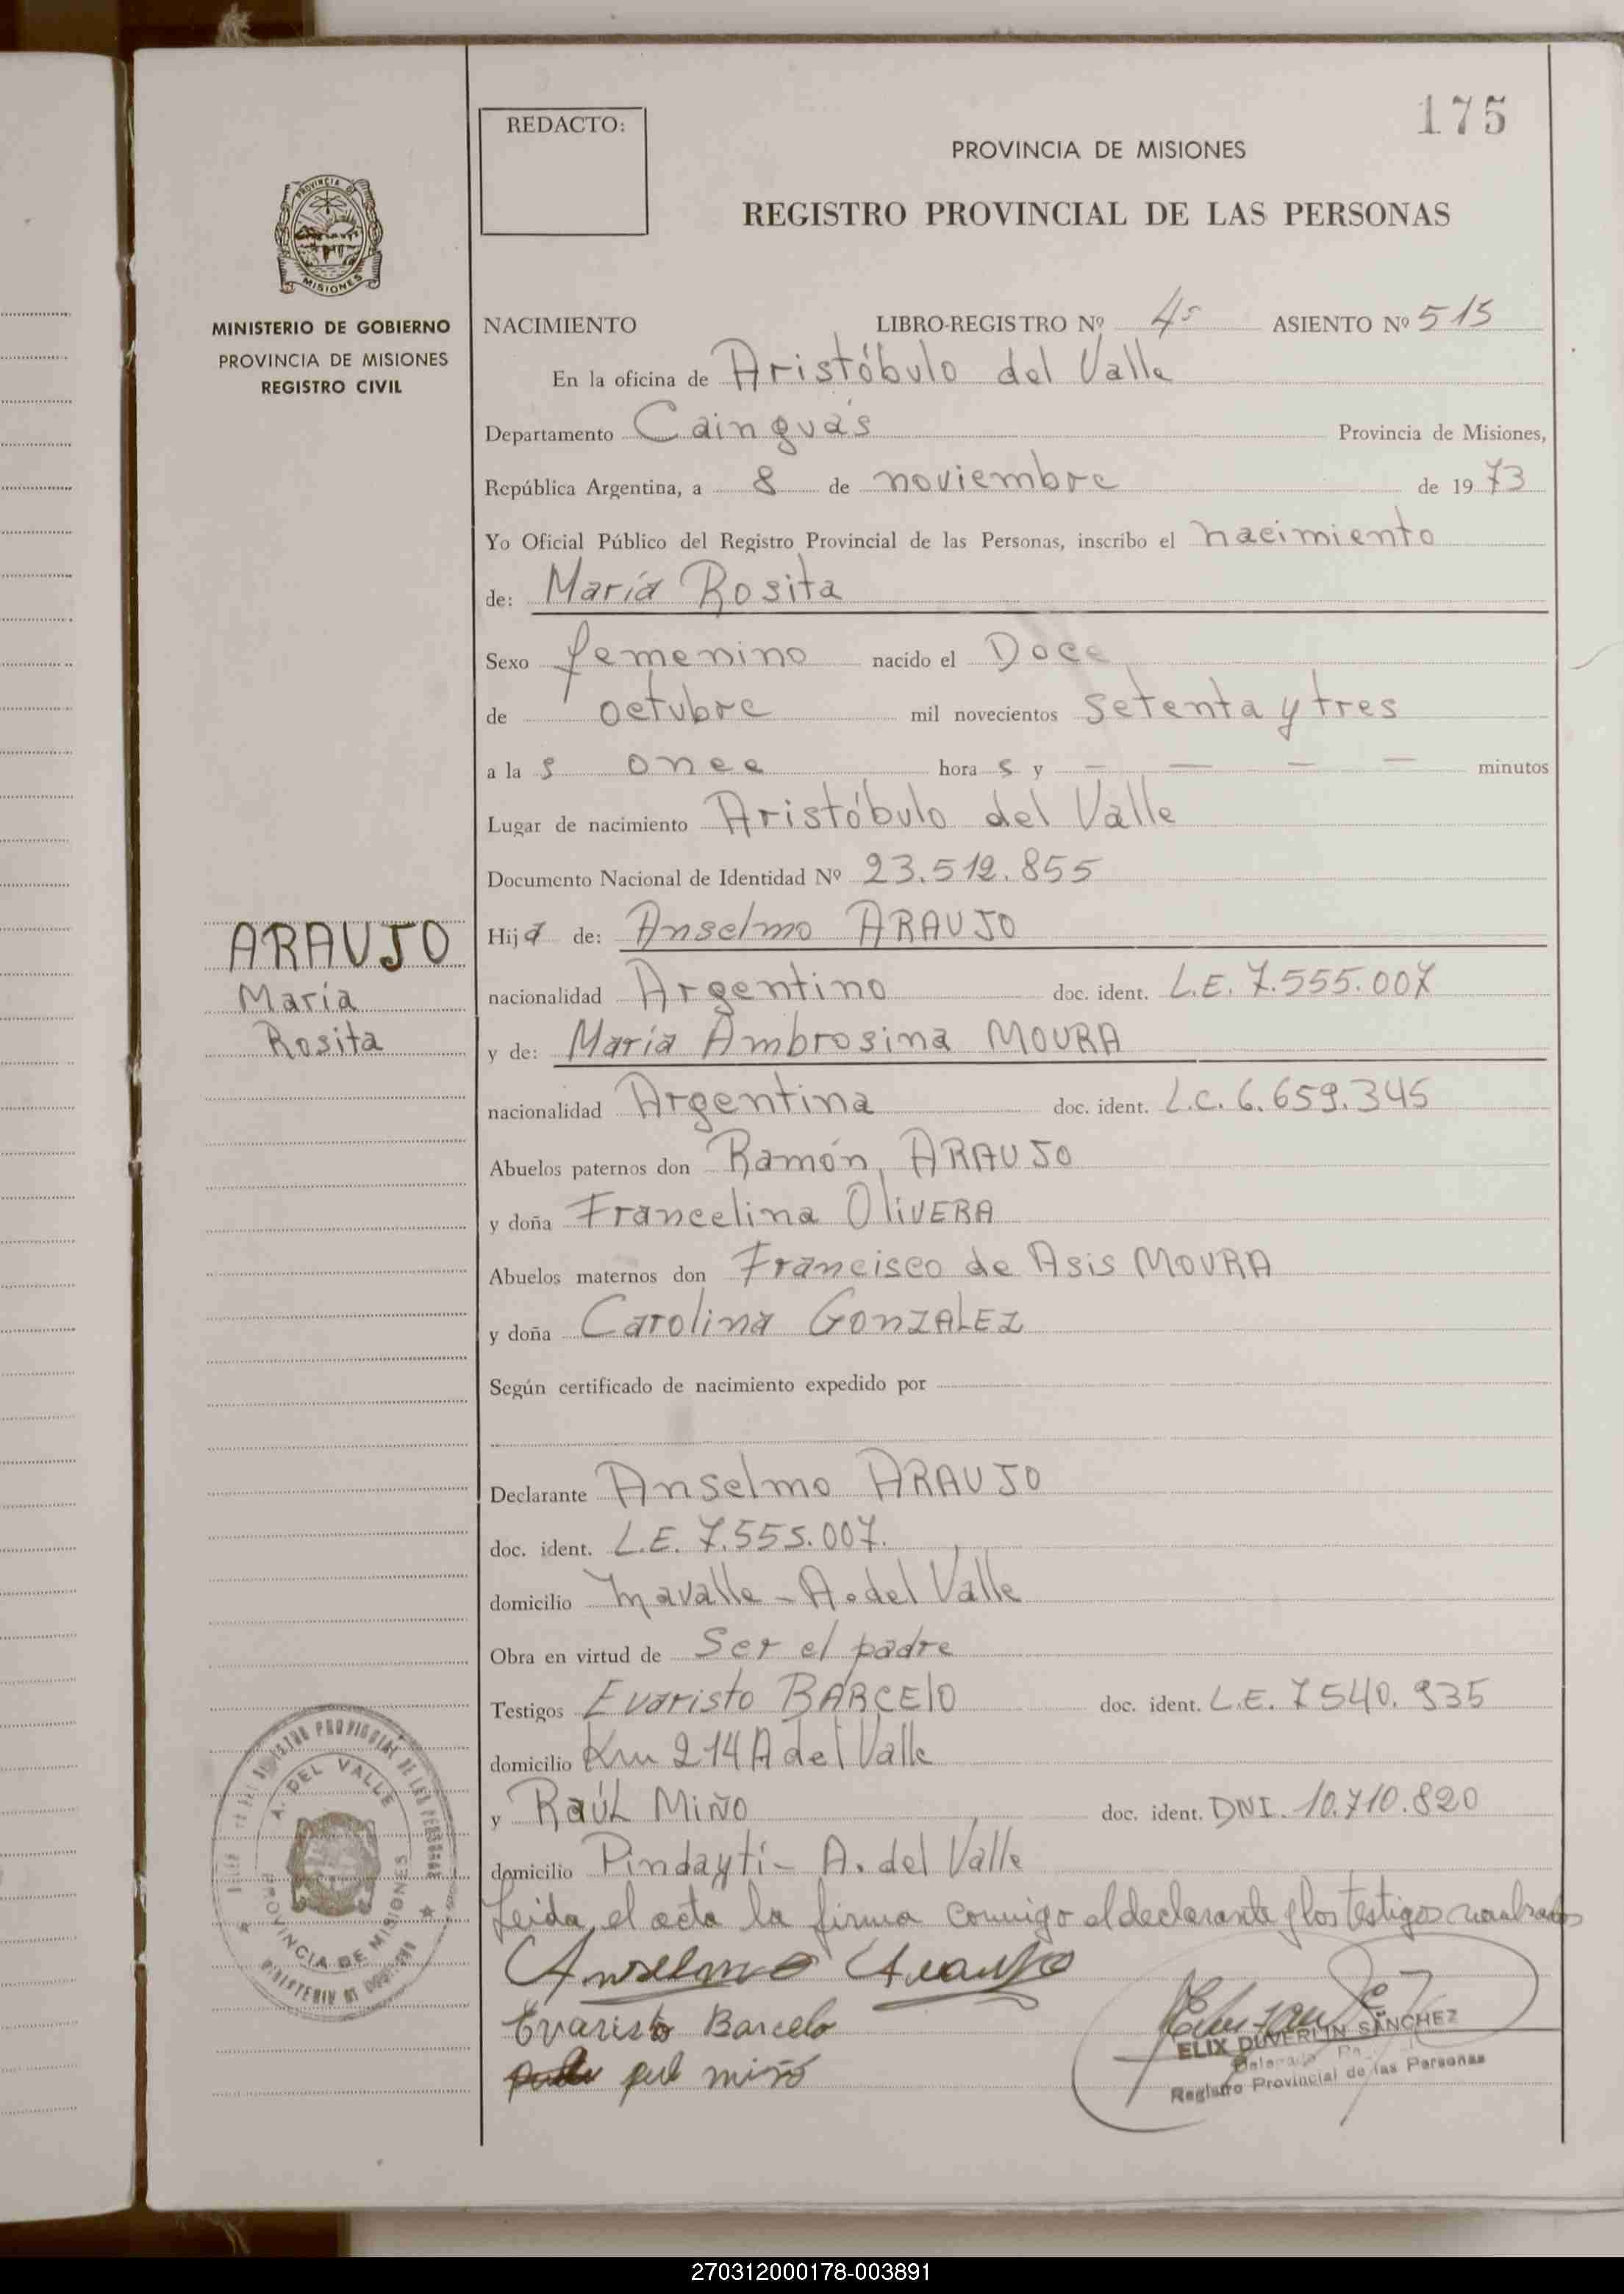 175
REDACTO:
PROVINCIA DE MISIONES
REGISTRO PROVINCIAL DE LAS PERSONAS
PROVINCIA DE
MISIONES
MINISTERIO DE GOBIERNO
PROVINCIA DE MISIONES
REGISTRO CIVIL
NACIMIENTO LIBRO-REGISTRO Nº 4s ASIENTO Nº 515
En la oficina de Aristóbulo del Valle
Departamento Cainguás Provincia de Misiones,
República Argentina, a 8 de noviembre de 1973
Yo Oficial Público del Registro Provincial de las Personas, inscribo el nacimiento
de: María Rosita
Sexo femenino nacido el Doce
de octubre mil novecientos setenta y tres
a las once horas y — — — — minutos
Lugar de nacimiento Aristóbulo del Valle
Documento Nacional de Identidad Nº 23.512.855
Hija de: Anselmo ARAUJO
nacionalidad Argentino doc. ident. L.E. 7.555.007
y de: María Ambrosina MOURA
nacionalidad Argentina doc. ident. L.C. 6.659.345
Abuelos paternos don Ramón ARAUJO
y doña Francelina OliVERA
Abuelos maternos don Francisco de Asis MOURA
y doña Carolina GONZALEZ
Según certificado de nacimiento expedido por
Declarante Anselmo ARAUJO
doc. ident. L.E. 7.555.007.
domicilio Mavalle - A. del Valle
Obra en virtud de Ser el padre
Testigos Evaristo BARCELO doc. ident. L.E. 7540.935
domicilio Km 214 A del Valle
y Raúl Miño doc. ident. DNI. 10.710.820
domicilio Pindaytí - A. del Valle
Leida el acta la firma conmigo el declarante y los testigos nombrados
Anselmo Araujo
Evaristo Barcelo
miño
ELIX DUVERLIN SANCHEZ
Registro Provincial de las Personas
ARAUJO
María
Rosita
REGISTRO PROVINCIAL DE LAS PERSONAS
A. DEL VALLE
PROVINCIA DE MISIONES
MINISTERIO DE GOBIERNO
270312000178-003891